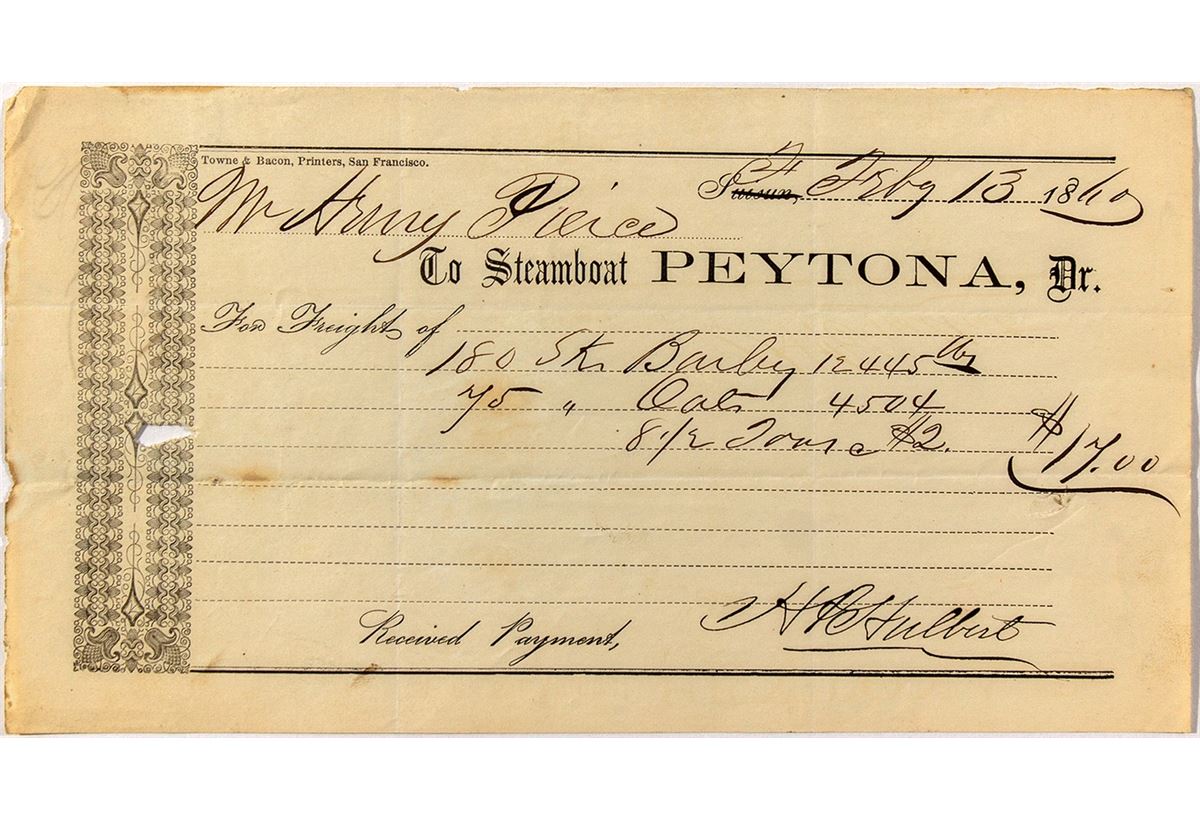 Towne & Bacon, Printers, San Francisco.
Suisun, Feby 13 1860
Mr Henry Pierce
To Steamboat PEYTONA, Dr.
For Freight of
180 Sks Barley 12445 lbs
75 " Oats 4504
8 1/2 Tons $2. $17.00
Received Payment, H Hulbert